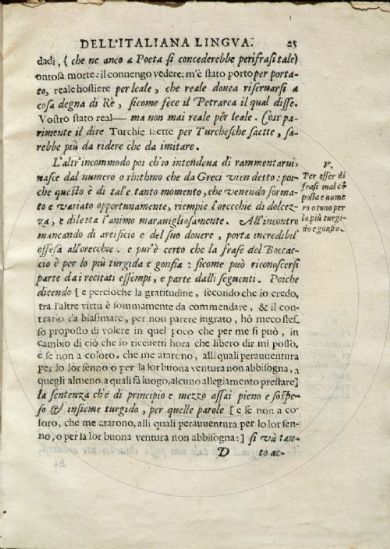 DELL'ITALIANA LINGVA. 25
dadi, (che ne anco a Poeta si concederebbe perifrasi tale)
ontosa morte: il conuengo vedere. m'è stato porto per porta-
to, reale hostiere per leale, che reale douea riseruarsi a
cosa degna di Rè, sicome fece il Petrarca il qual disse.
Vostro stato real— ma non mai reale per leale. Così pa-
rimente il dire Turchie saette per Turchesche saette, sa-
rebbe più da ridere che da imitare.
L'altr'incommodo poi ch'io intendeua di rammentarui,
nasce dal numero o rhithmo che da Greci vien detto: per
che questo è di tale tanto momento, che venendo forma-
to e variato opportunamente, riempie l'orecchie di dolcez-
za, e diletta l'animo marauigliosamente. All'incontro
mancando di artificio e del suo douere, porta incredibil
offesa all'orecchie. e pur'è certo che la frase del Boccac-
cio è per lo più turgida e gonfia: sicome può riconoscersi
parte da i recitati essempi, e parte dalli seguenti. Poiche
dicendo [e percioche la gratitudine, secondo che io credo,
tra l'altre virtù è sommamente da commendare, & il con-
trario da biasimare, per non parere ingrato, hò meco stes-
so proposto di volere in quel poco che per me si può, in
cambio di ciò che io riceuetti hora che libero dir mi posso,
e se non a coloro, che me atarono, alli quali perauuentura
per lo lor senno o per la lor buona ventura non abbisogna, a
quegli almeno, a quali fà luogo, alcuno allegiamento prestare]
la sentenza ch'è di principio e mezzo assai pieno e sospe-
so & insieme turgido, per quelle parole [e se non a co-
loro, che me atarono, alli quali perauuentura per lo lor sen-
no, o per la lor buona ventura non abbisogna:] si và tan-
D to ac-
V.
Per esser di
frasi mal co
posta e nume
ro o tono per
lo più turgi-
do e gonfio.